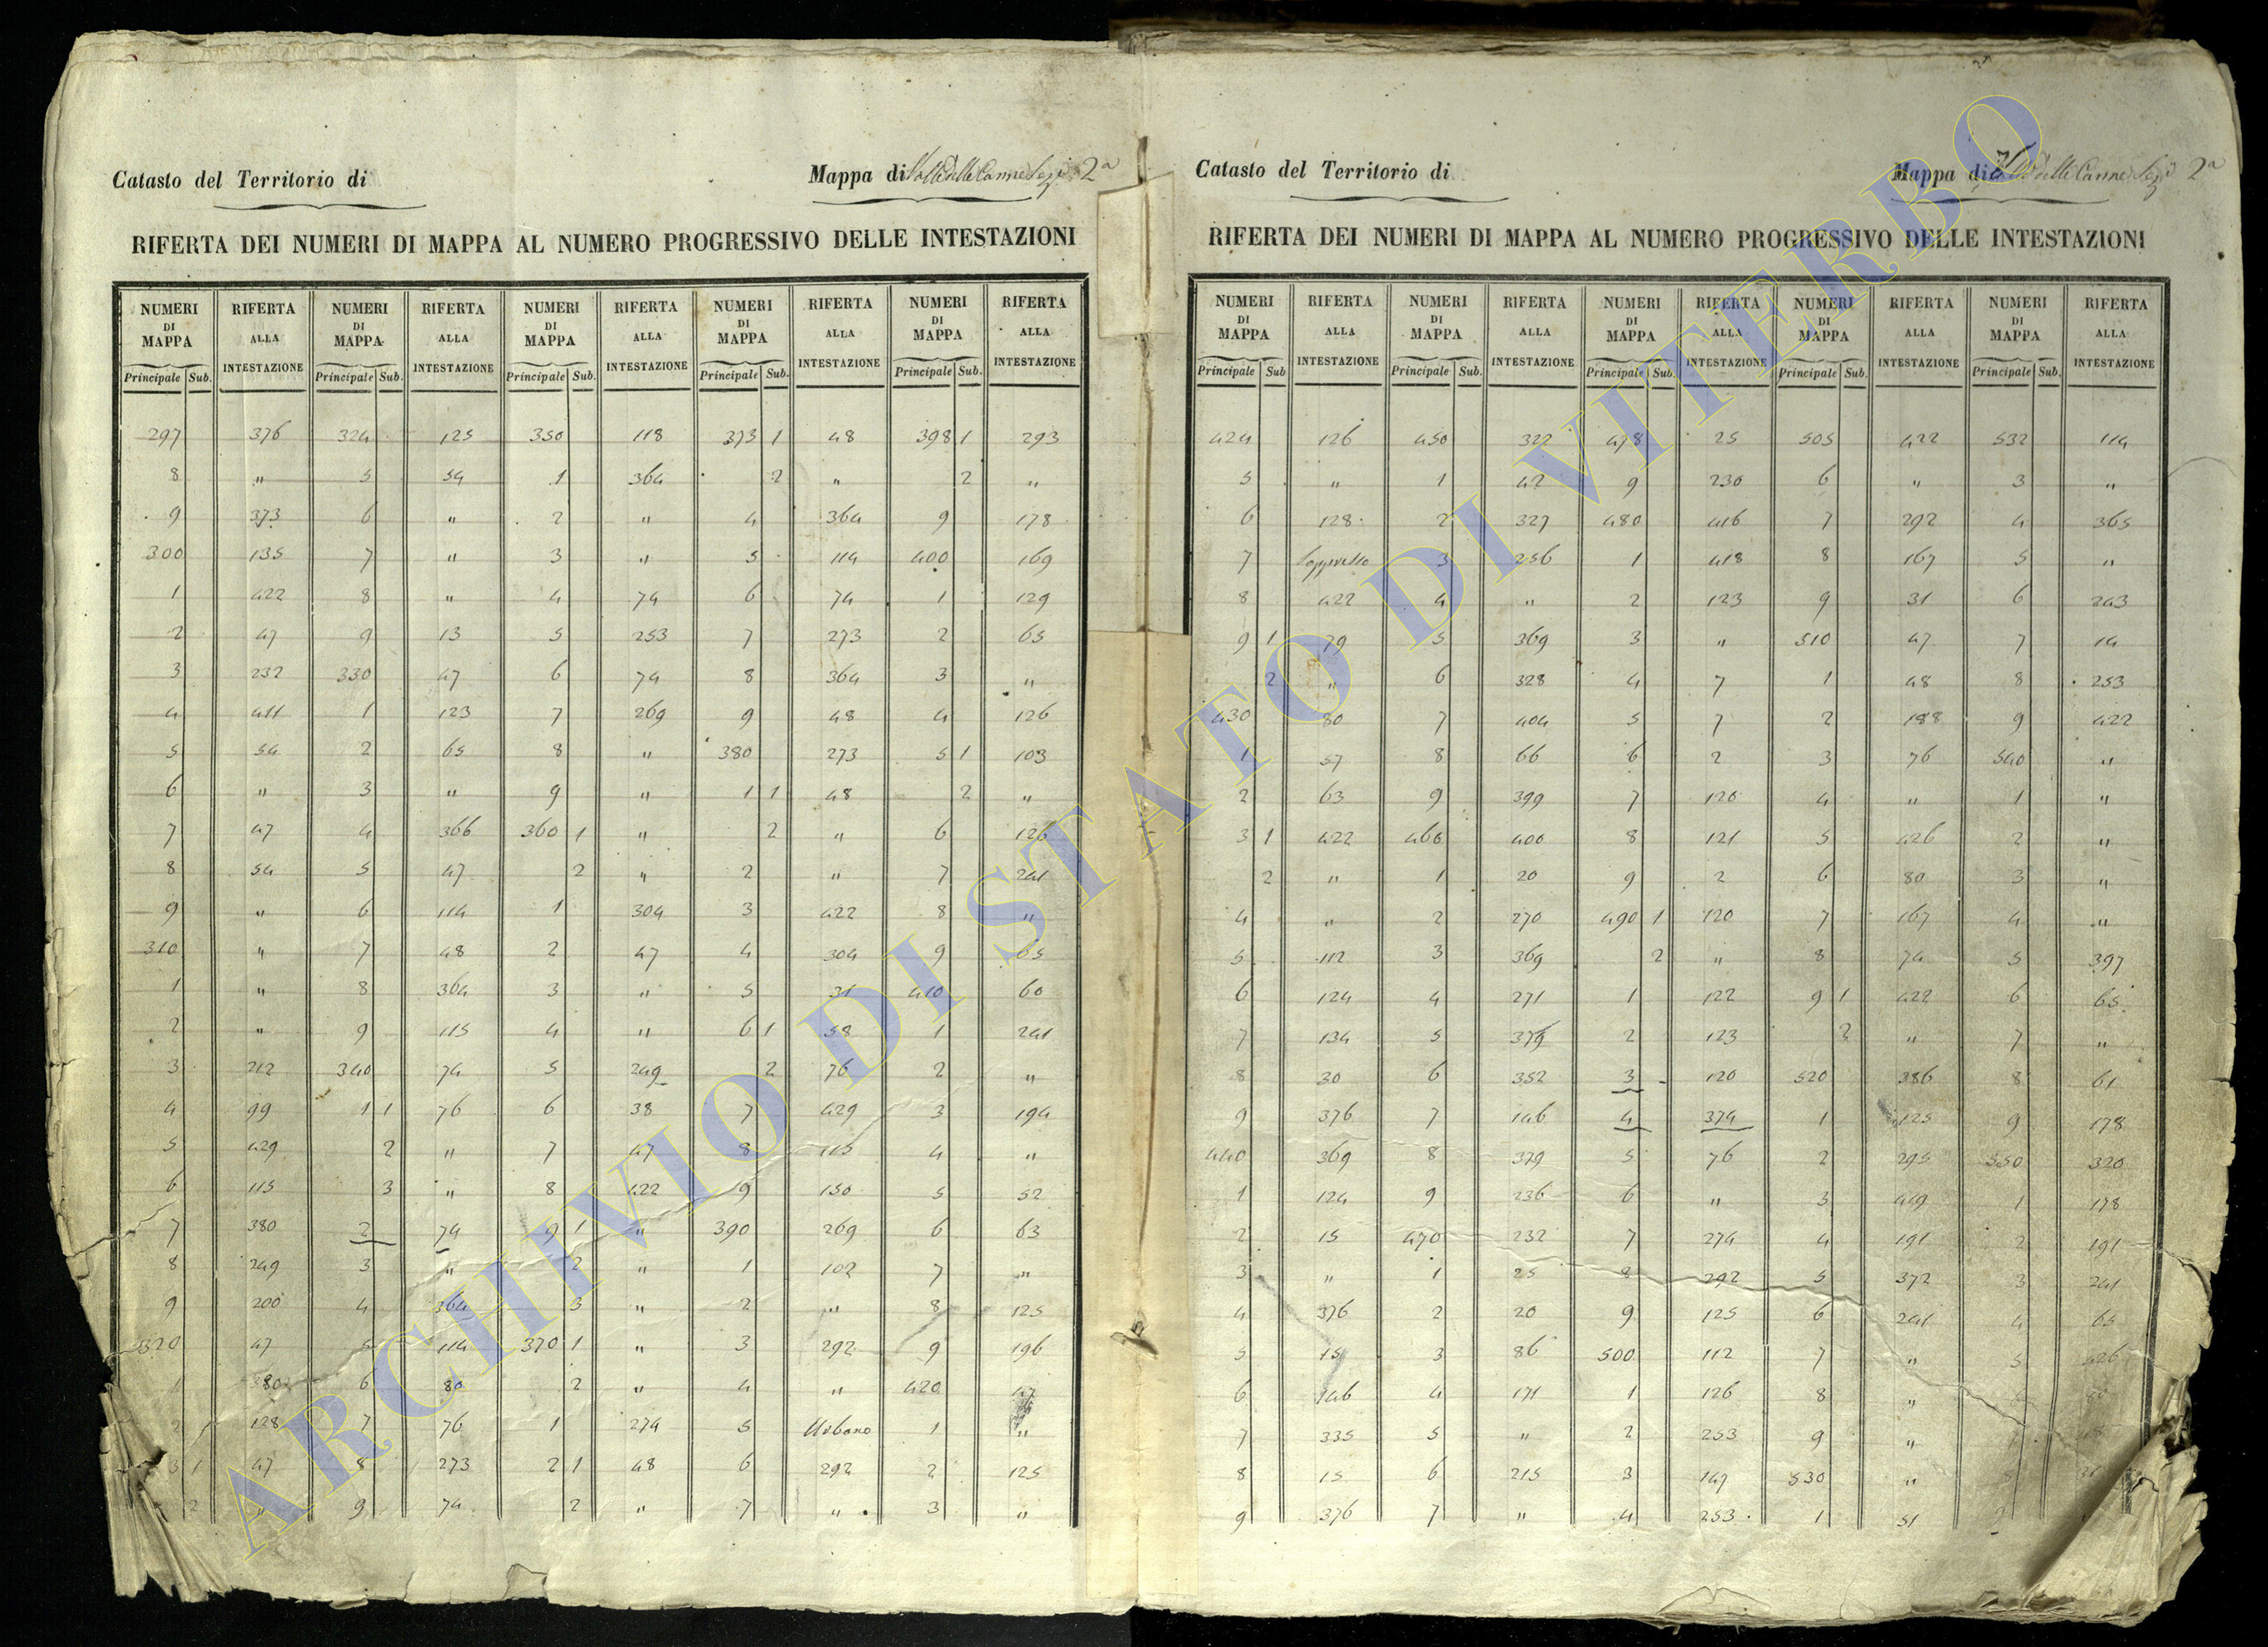 Catasto del Territorio di
Mappa di Valle delle Canne Sez. 2ª
RIFERTA DEI NUMERI DI MAPPA AL NUMERO PROGRESSIVO DELLE INTESTAZIONI
NUMERI DI MAPPA RIFERTA ALLA INTESTAZIONE NUMERI DI MAPPA RIFERTA ALLA INTESTAZIONE NUMERI DI MAPPA RIFERTA ALLA INTESTAZIONE NUMERI DI MAPPA RIFERTA ALLA INTESTAZIONE NUMERI DI MAPPA RIFERTA ALLA INTESTAZIONE
Principale Sub. Principale Sub. Principale Sub. Principale Sub. Principale Sub.
297 376 324 125 350 118 373 1 48 398 1 293
8 " 5 54 1 364 2 " 2 "
9 373 6 " 2 " 4 364 9 178
300 135 7 " 3 " 5 114 400 169
1 422 8 " 4 74 6 74 1 129
2 47 9 13 5 253 7 273 2 65
3 232 330 47 6 74 8 364 3 "
4 411 1 123 7 269 9 48 4 126
5 54 2 65 8 " 380 273 5 1 103
6 " 3 " 9 " 1 1 48 2 "
7 47 4 366 360 1 " 2 " 6 126
8 54 5 47 2 " 2 " 7 241
9 " 6 114 1 304 3 422 8 "
310 " 7 48 2 47 4 304 9 65
1 " 8 364 3 " 5 31 410 60
2 " 9 115 4 " 6 1 58 1 241
3 212 340 74 5 249 2 76 2 "
4 99 1 1 76 6 38 7 429 3 194
5 429 2 " 7 47 8 115 4 "
6 115 3 " 8 422 9 150 5 52
7 380 2 74 9 1 " 390 269 6 63
8 249 3 " 2 " 1 102 7 "
9 200 4 364 3 " 2 " 8 125
320 47 5 114 370 1 " 3 292 9 196
380 6 80 2 " 4 " 420 47
2 128 7 76 1 274 5 Urbano 1 "
3 1 47 8 273 2 1 48 6 292 2 125
2 " 9 74 2 " 7 " 3 "
Catasto del Territorio di
Mappa di Valle delle Canne Sez. 2ª
RIFERTA DEI NUMERI DI MAPPA AL NUMERO PROGRESSIVO DELLE INTESTAZIONI
NUMERI DI MAPPA RIFERTA ALLA INTESTAZIONE NUMERI DI MAPPA RIFERTA ALLA INTESTAZIONE NUMERI DI MAPPA RIFERTA ALLA INTESTAZIONE NUMERI DI MAPPA RIFERTA ALLA INTESTAZIONE NUMERI DI MAPPA RIFERTA ALLA INTESTAZIONE
Principale Sub Principale Sub. Principale Sub. Principale Sub. Principale Sub.
424 126 450 322 478 25 505 422 532 114
5 " 1 42 9 230 6 " 3 "
6 128 2 327 480 416 7 292 4 365
7 Soppresso 3 256 1 418 8 167 5 "
8 422 4 " 2 123 9 31 6 243
9 1 79 5 369 3 " 510 47 7 14
2 " 6 328 4 7 1 48 8 253
430 80 7 404 5 7 2 188 9 422
1 57 8 66 6 2 3 76 540 "
2 63 9 399 7 120 4 " 1 "
3 1 422 460 400 8 121 5 426 2 "
2 " 1 20 9 2 6 80 3 "
4 " 2 270 490 1 120 7 167 4 "
5 112 3 369 2 " 8 74 5 397
6 124 4 271 1 122 9 1 422 6 65
7 134 5 379 2 123 2 " 7 "
8 30 6 352 3 120 520 386 8 61
9 376 7 146 4 374 1 125 9 178
440 369 8 379 5 76 2 295 550 320
1 124 9 236 6 " 3 449 1 178
2 15 470 232 7 274 4 191 2 191
3 " 1 25 8 292 5 372 3 241
4 376 2 20 9 125 6 241 4 65
5 15 3 86 500 112 7 " 5 426
6 146 4 171 1 126 8 "
7 335 5 " 2 253 9 "
8 15 6 215 3 147 530 "
9 376 7 " 4 253 1 51
ARCHIVIO DI STATO DI VITERBO